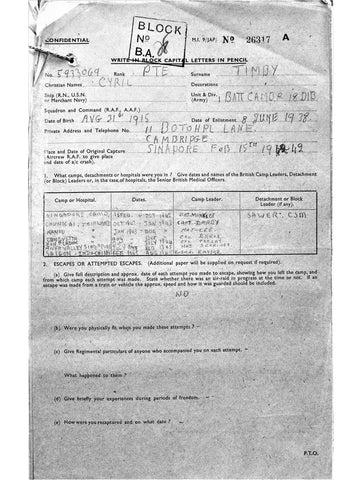 BLOCK
No
B.A.
CONFIDENTIAL
M.I. 9/JAP/ No 26317 A
WRITE IN BLOCK CAPITAL LETTERS IN PENCIL
No. 5933069 Rank PTE Surname TIMBY
Christian Names CYRIL Decorations
Ship (R.N., U.S.N. or Merchant Navy) Unit & Div. (Army) BATT CAMBR 18 DIV
Squadron and Command (R.A.F., A.A.F.)
Date of Birth AVG 21st 1915 Date of Enlistment 8 JUNE 1938
Private Address and Telephone No. 11 BOTOHPL LANE,
CAMBRIDGE
Place and Date of Original Capture SINAPORE FEB 15TH 1942
(Aircrew R.A.F. to give place
and date of a/c crash)
1. What camps, detachments or hospitals were you in? Give dates and names of the British Camp Leaders, Detachment
(or Block) Leaders or, in the case of hospitals, the Senior British Medical Officers.
Camp or Hospital. Dates. Camp Leader. Detachment or Block
Leader (if any).
SINGAPORE SAWER. CSM
2. ESCAPES OR ATTEMPTED ESCAPES. (Additional paper will be supplied on request if required).
(a) Give full description and approx. date of each attempt you made to escape, showing how you left the camp, and
from which camp each attempt was made. State whether there was an air-raid in progress at the time or not. If an
escape was made from a train or vehicle the approx. speed and how it was guarded should be included.
NO
(b) Were you physically fit when you made these attempts? -
(c) Give Regimental particulars of anyone who accompanied you on each attempt. -
What happened to them? -
(d) Give briefly your experiences during periods of freedom. -
(e) How were you recaptured and on what date? -
P.T.O.